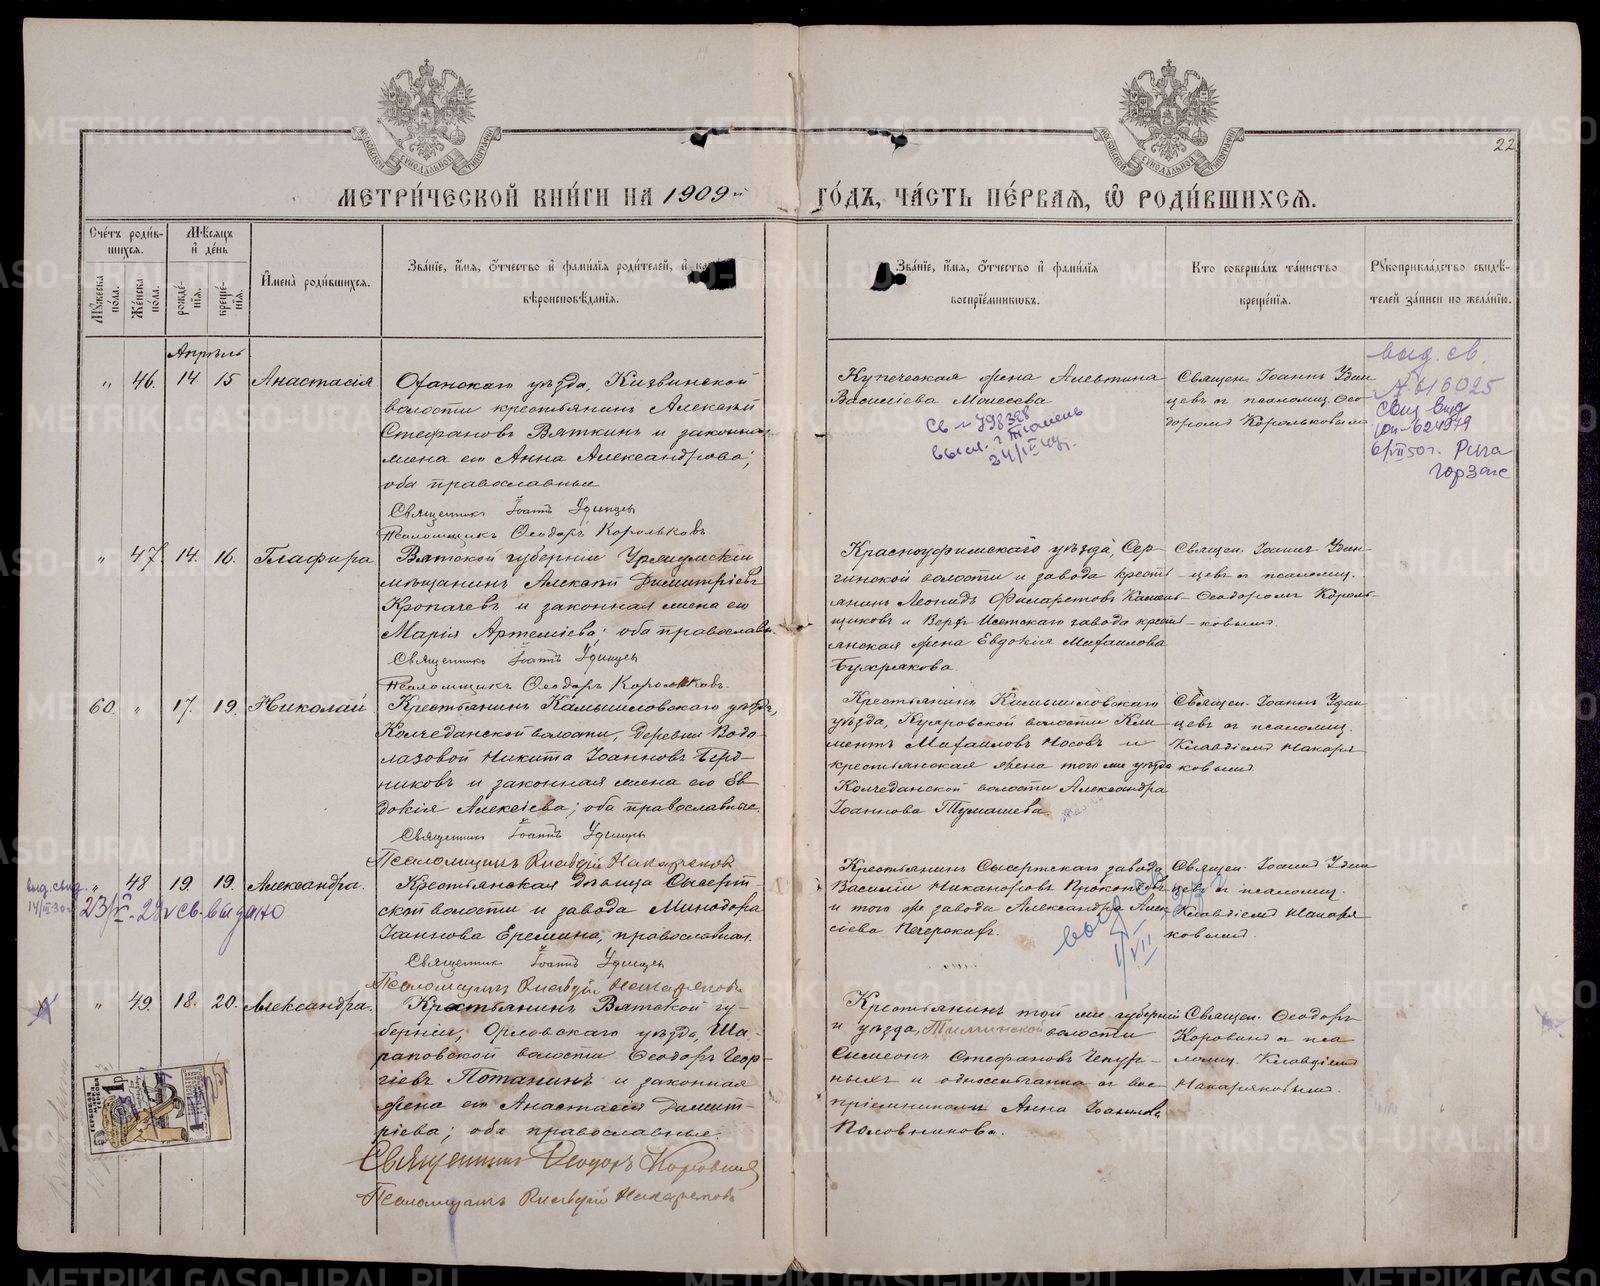 22.
МЕТРИ́ЧЕСКОЙ КНИ́ГИ НА 1909й ГО́ДЪ, ЧА́СТЬ ПЕ́РВАЯ, Ѡ РОДИ́ВШИХСЯ.
Сче́тъ роди́вшихся.
Му́жеска по́ла.
Же́нска по́ла.
Мѣ́сяцъ и де́нь
рожде́нія.
креще́нія.
Имена̀ роди́вшихся.
Зва́ніе, и́мя, о́тчество и фами́лія роди́телей, и
вѣроисповѣ́данія.
Зва́ніе, и́мя, о́тчество и фами́лія
воспріе́мниковъ.
Кто соверша́лъ та́инство
креще́нія.
Рукоприкла́дство свидѣ́телей за́писи по жела́нію.
Апрѣль
„ 46. 14. 15 Анастасія
Оханскаго уѣзда, Кизвинской
волости крестьянинъ Алексѣй
Стефановъ Вяткинъ и законная
жена его Анна Александрова;
оба православные
Священникъ Іоаннъ Удинцев
Псаломщикъ Ѳеодоръ Корольковъ
Купеческая жена Алевтина
Василіева Моисеева
Св № 798398
высл. г Тюмень
Священ. Іоаннъ Удинцевъ съ псаломщ. Ѳеодоромъ Корольковымъ
выд. св.
№ 616025
Свид. выд.
№ 624979
6/VII 50г. Рига
горзагс
„ 47. 14. 16. Глафира
Вятской губерніи Уржумскій
мѣщанинъ Алексѣй Димитріевъ
Кропачевъ и законная жена его
Марія Артеміева; оба православн.
Священникъ Іоаннъ Удинцев
Псаломщикъ Ѳеодоръ Корольковъ.
Красноуфимскаго уѣзда, Сергинской волости и завода крестьянинъ Леонидъ Филаретовъ Каменьщиковъ и Верхъ Исетскаго завода крестьянская жена Евдокія Михаилова
Бухрякова.
Священ. Іоаннъ Удинцевъ съ псаломщ.
Ѳеодоромъ Корольковымъ.
60. „ 17. 19. Николай
Крестьянинъ Камышловскаго уѣзда,
Колчеданской волости, деревни Водолазовой Никита Іоанновъ Бердниковъ и законная жена его Евдокія Алексіева; оба православные.
Священникъ Іоаннъ Удинцев
Псаломщикъ Клавдій Макаряковъ
Крестьянинъ Камышловскаго
уѣзда, Куяровской волости Климентъ Михаиловъ Носовъ и
крестьянская жена того же уѣзда
Колчеданской волости Александра
Іоаннова Тумашева.
Священ. Іоаннъ Удинцевъ съ псаломщ.
Клавдіемъ Макаряковымъ.
выд. свид.
„ 48 19. 19. Александра.
23/X-29г св-выдано
Крестьянская дѣвица Сысертской волости и завода Минодора
Іоаннова Еремина, православная.
Священникъ Іоаннъ Удинцев
Псаломщикъ Клавдій Макаряковъ
Крестьянинъ Сысертскаго завода
Василій Никаноровъ Прокопьевъ
и того же завода Александра Алексіева Печерскихъ.
Священ. Іоаннъ Удинцевъ съ псаломщ.
Клавдіемъ Макаряковымъ.
„ 49. 18. 20. Александра.
Крестьянинъ Вятской губерніи, Орловскаго уѣзда, Шараповской волости Ѳеодоръ Георгіевъ Потанинъ и законная
жена его Анастасія Димитріева; оба православные.
Священникъ Ѳеодоръ Коровинъ
Псаломщикъ Клавдій Макаряковъ
Крестьянинъ той же губерніи
и уѣзда, волости
Симеонъ Стефановъ Чепурныхъ и односельчанка съ воспріемникомъ Анна Іоаннова
Половникова.
Священ. Ѳеодоръ
Коровинъ съ псаломщ. Клавдіемъ
Макаряковымъ.